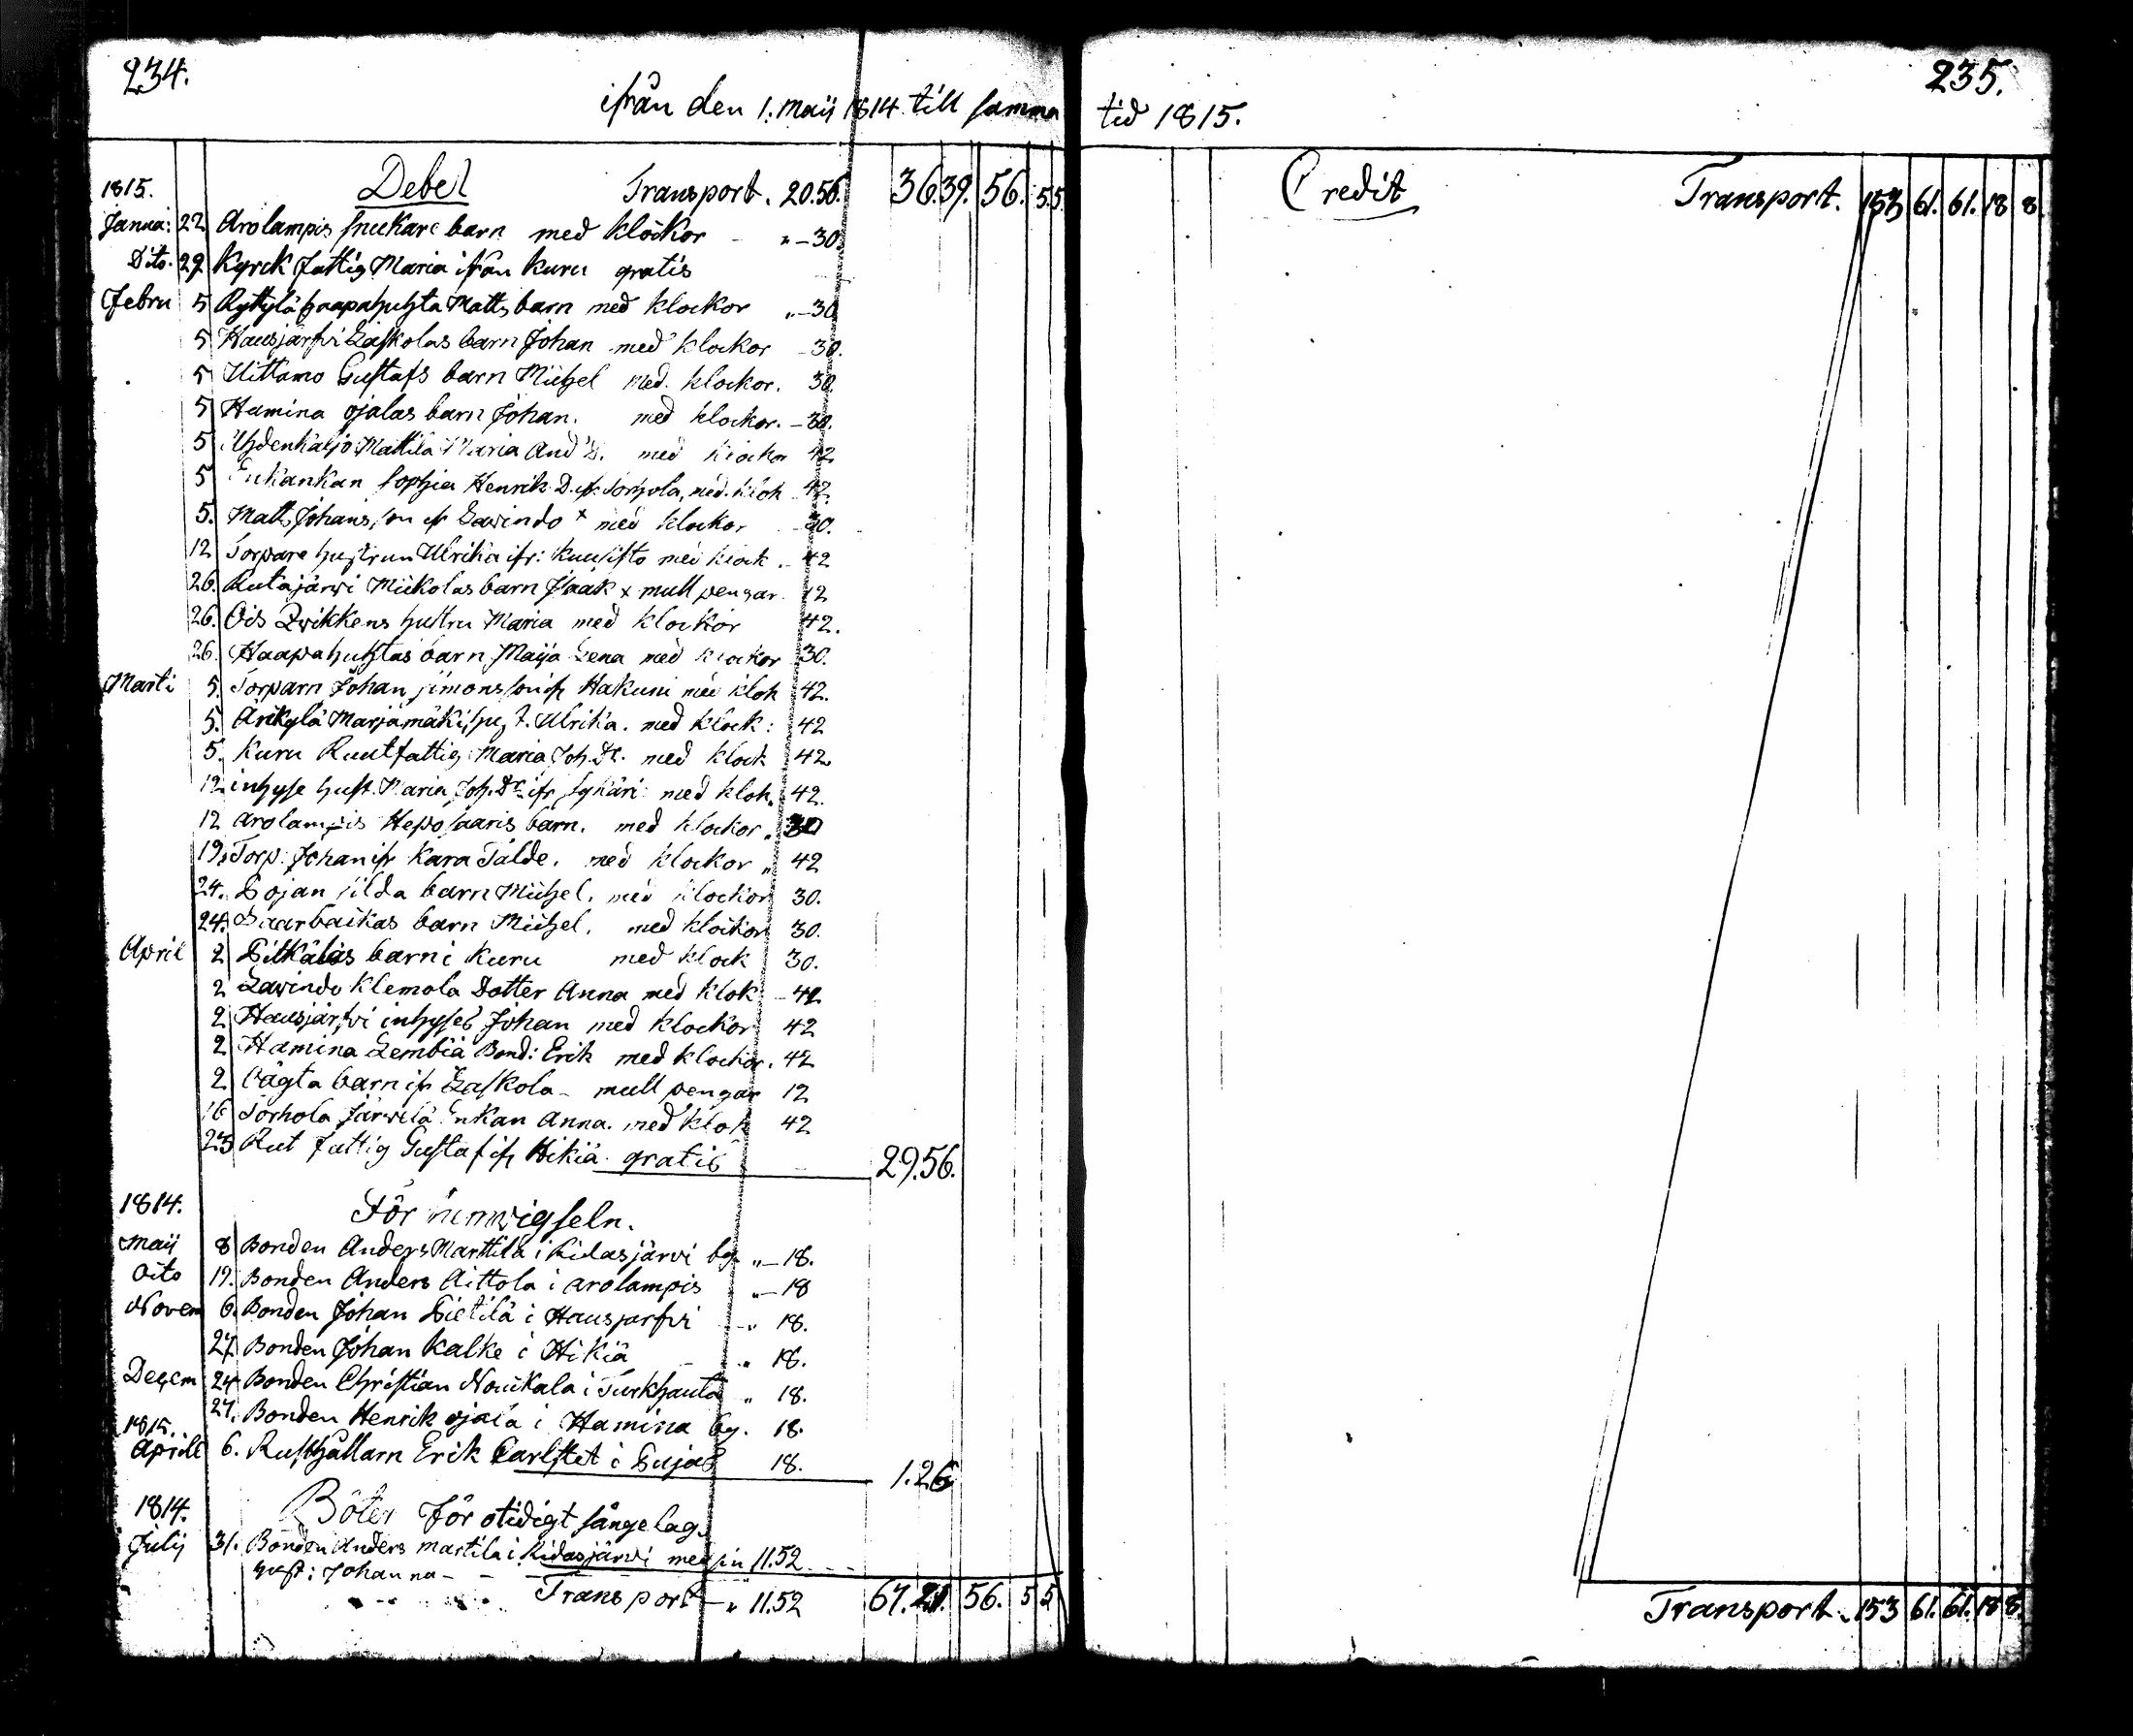 234.
ifrån den 1. Maij 1814 till samma
1815. Debet Transport. 20.56. 36.39. 56. 5.5.
Janua: 22 Arolampis snickare barn med klockor „-30.
Dito. 29 Kyrck fattig Maria ifrån Kuru gratis
Febru 5 Ryttylä haapahuhta Matts barn med klockor „-30
5 Hausjärfvi Laskolas barn Johan med klockor -30.
5 Uittamo Gustafs barn Michel med klockor. 30.
5 Hamina ojalas barn Johan. med klockor. -30.
5 Uhdenkäljo Mattila Maria And. D. med klockor 42
5 Enkankan Sophia Henrik. D. ifr. Torhola, med. klok 42.
5. Matts Johansson ifr Lavindo x med klockor -30.
12 Torpare hustrun Ulrika ifr: Kuusisto med klock. 42
26. Rutajärwi Mickolas barn Isaak x mull pengar 12
26. Ois Qvikkens hustru Maria med klockor 42.
26. Haapahuhtas barn Maija Lena med klockor 30.
Marti 5. Torparn Johan simonsson ifr Hakuni med klok 42.
5. Arikylä Marjamäki, hust. Ulrika. med klock: 42
5. Kuru Ruutfattig Maria Joh. Dr. med klock 42
12 inhyse hust. Maria Joh. Dr. ifr sykäri med klok. 42.
12 arolampis Heposaaris barn. med klockor „ 30
19. Torp: Johan ifr Kara Tälde. med klockor „ 42
24. Pojan silda barn Michel. med klockor 30.
24. Paarbackas barn Michel. med klockor 30.
April 2 Pitkäläs barn i Kuru med klock 30.
2 Lavindo Klemola Dotter Anna med klok -42
2 Hausjärfvi inhyses Johan med klockor 42
2 Hamina Lembiä Bond: Erik med klockor. 42
2 oägta barn ifr Laskola - mull pengar 12
16 Torhola Järvilä Enkan Anna. med klok 42
23 Rut fattig Gustaf ifr Hikiä. gratis 29.56.
1814. För wigseln.
Maij 8 Bonden Anders Marttila i Kidasjärvi by „-18.
Dito 19. Bonden Anders Aittola i arolampis „-18
Novem 6. Bonden Johan Pietilä i Hausjarfvi -„ 18.
27. Bonden Johan Kalke i Hikiä „ 18.
Decem 24 Bonden Christian Nouckala i Turkhauta „ 18.
27. Bonden Henrik ojala i Hamina by. 18.
1815.
Aprill 6. Rusthållarn Erik Carlstet i Pujas 18. 1.26
1814. Böter För otidigt sängelag.
Julij 31. Bonden Anders martila i Kidasjärwi med sin 11.52
hust: Johanna -
Transport -„ 11.52 67.21. 56. 5 5
235.
tid 1815.
Credit Transport. 153 61. 61. 18 8
Transport. 153 61. 61. 18 8.